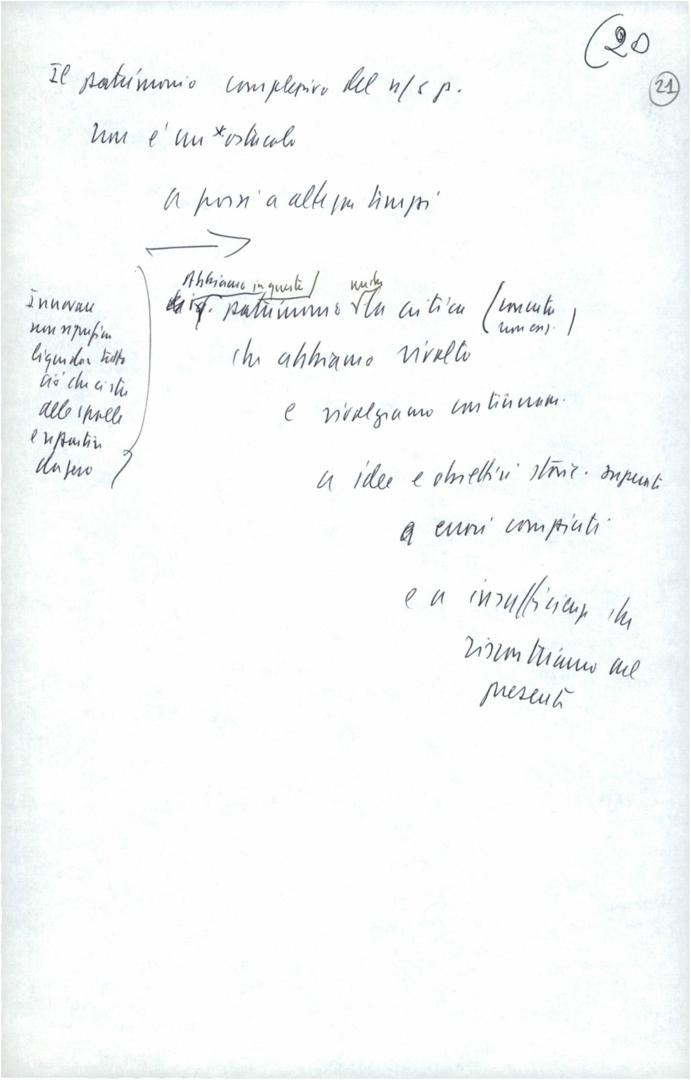 (20
21
Il patrimonio complessivo del n/s p.
non è un *ostacolo
a porsi a altezza tempi
Abbiamo in questo / anche
patrimonio √ la critica (
che abbiamo rivolto
e rivolgiamo continuam.
a idee e obiettivi storic. superati
a errori compiuti
e a insufficienze che
riscontriamo nel
presente
Innovare
non significa
liquidar tutto
ciò che ci sta
alle spalle
e ripartire
da zero